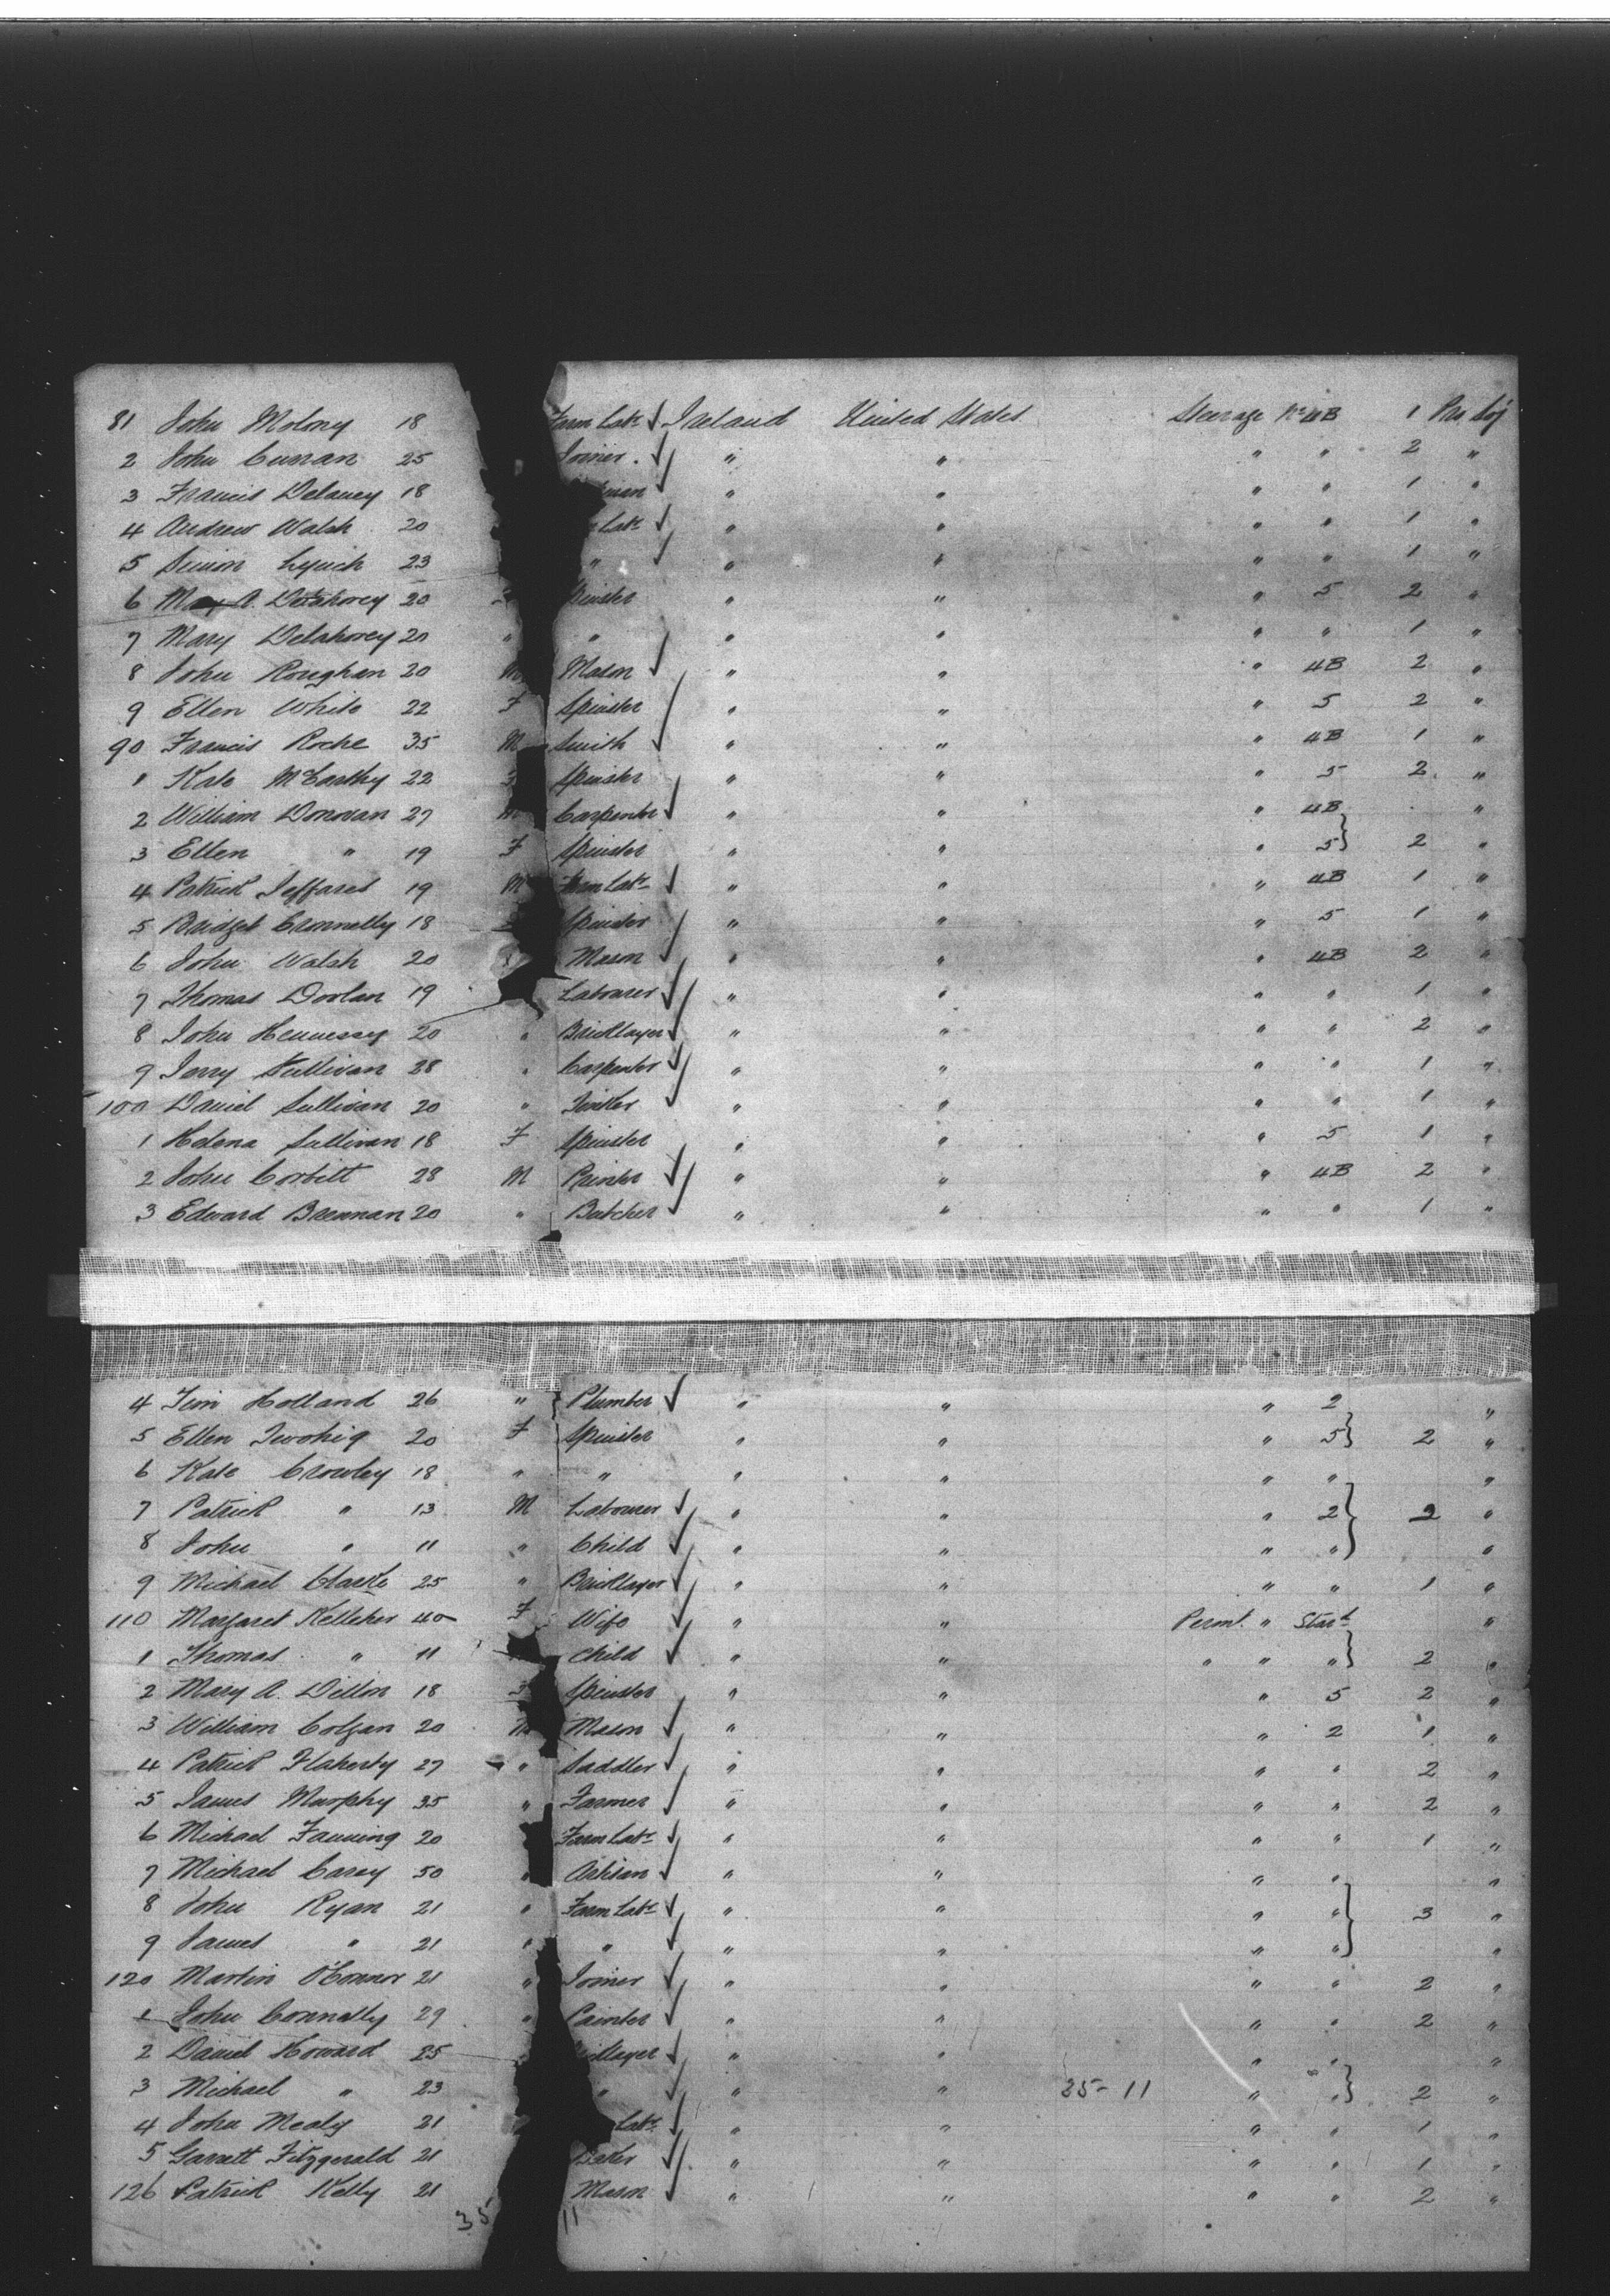 81 John Molony 18 Farm Labr ✓ Ireland United States Steerage No 4B 1 Pas Soj
2 John Curran 25 Joiner. ✓ " " " " 2 "
3 Francis Delaney 18 ✓ " " " " 1 "
4 Andrew Walsh 20 Labr ✓ " " " " 1 "
5 Simon Lynch 23 " ✓ " " " " 1 "
6 A. Delahorey 20 Spinster " " " 5 2 "
7 Mary Delahorey 20 " " " " " " 1 "
8 John Roughan 20 M Mason ✓ " " " 4B 2 "
9 Ellen White 22 F Spinster " " " 5 2 "
90 Francis Roche 35 M Smith ✓ " " " 4B 1 "
1 Kate McCarthy 22 F Spinster " " " 5 2 "
2 William Donovan 27 M Carpenter ✓ " " " 4B "
3 Ellen " 19 F Spinster " " " 5 } 2 "
4 Patrick Jeffares 19 M Farm Labr ✓ " " " 4B 1 "
5 Bridget Cronnelly 18 Spinster " " " 5 1 "
6 John Walsh 20 Mason ✓ " " " 4B 2 "
7 Thomas Doolan 19 Labourer ✓ " " " " 1 "
8 John Hennessy 20 " Bricklayer ✓ " " " " 2 "
9 Jerry Sullivan 28 " Carpenter ✓ " " " " 1 "
100 Daniel Sullivan 20 " ✓ " " " " 1 "
1 Helena Sullivan 18 F Spinster " " " 5 1 "
2 John Corbitt 28 M ✓ " " " 4B 2 "
3 Edward Brennan 20 " Butcher ✓ " " " " 1 "
4 Tim Holland 26 " Plumber ✓ " " " 2 "
5 Ellen Twohig 20 F Spinster " " " 5 } 2 "
6 Kate Crowley 18 " " " " " " "
7 Patrick " 13 M Labourer ✓ " " " 2 } 2 "
8 John " 11 " Child ✓ " " " " "
9 Michael Clarke 25 " Bricklayer ✓ " " " " 1 "
110 Margaret Kelleher 40 F Wife ✓ " " Permt. " Start "
1 Thomas " 11 Child ✓ " " " " " } 2 "
2 Mary A. Dillon 18 F Spinster " " " 5 2 "
3 William Colgan 20 M Mason ✓ " " " 2 1 "
4 Patrick Flaherty 27 " Saddler ✓ " " " " 2 "
5 James Murphy 35 " Farmer ✓ " " " " 2 "
6 Michael Fanning 20 Farm Labr ✓ " " " " 1 "
7 Michael Carey 50 " Artisan ✓ " " " " "
8 John Ryan 21 " Farm Labr ✓ " " " " } 3 "
9 James " 21 " " ✓ " " " " "
120 Martin O'Connor 21 " Joiner ✓ " " " " 2 "
1 John Connelly 29 " Painter ✓ " " " " 2 "
2 Daniel Howard 25 ✓ " " " " "
3 Michael " 23 " ✓ " " 25-11 " " } 2 "
4 John Mealy 21 Labr ✓ " " " " 1 "
5 Garrett Fitzgerald 21 Baker ✓ " " " " 1 "
126 Patrick Kelly 21 Mason ✓ " " " " 2 "
35 11